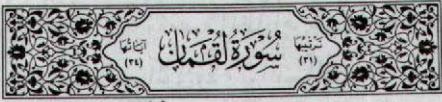 ترتيبها
(٣١)
سورة لقمان
آياتها
(٣٤)